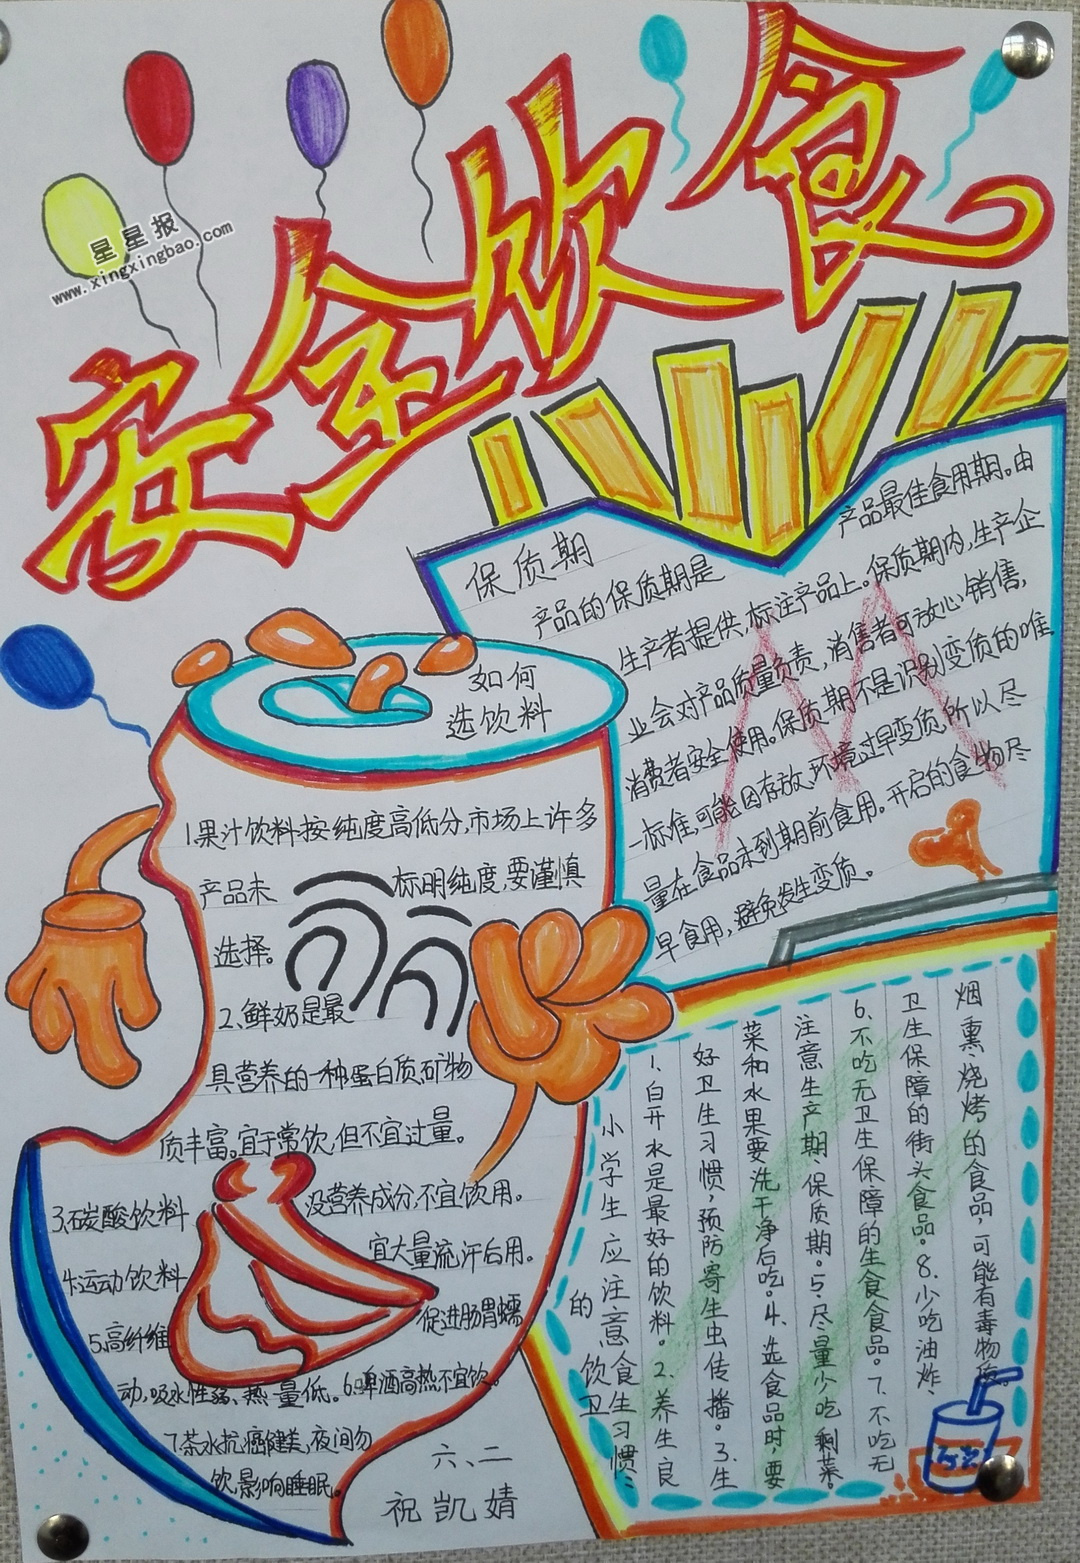 星星报
www.xingxingbao.com
安全饮食
保质期
产品的保质期是
产品最佳食用期。由
生产者提供,标注产品上。保质期内,生产企
业会对产品质量负责,消售者可放心销售,
消费者安全使用。保质期不是识别变质的唯
一标准,可能因存放、环境过早变质,所以尽
量在食品未到期前食用。开启的食物尽
早食用,避免发生变质。
如何
选饮料
1.果汁饮料按纯度高低分,市场上许多
产品未标明纯度,要谨慎
选择。
2、鲜奶是最
具营养的一种蛋白质矿物
质丰富。宜于常饮,但不宜过量。
3.碳酸饮料没营养成分,不宜饮用。
4.运动饮料宜大量流汗后用。
5.高纤维促进肠胃蠕
动,吸水性强、热量低。6.啤酒高热不宜饮。
7.茶水抗癌健美,夜间勿
饮,影响睡眠。
六、二
祝凯婧
小学生应注意食生习惯:
的饮卫
1.白开水是最好的饮料。2.养生良
好卫生习惯,预防寄生虫传播。3.生
菜和水果要洗干净后吃。4、选食品时,要
注意生产期、保质期。5.尽量少吃剩菜。
6.不吃无卫生保障的生食食品。7.不吃无
卫生保障的街头食品。8.少吃油炸、
烟熏、烧烤的食品,可能有毒物质。